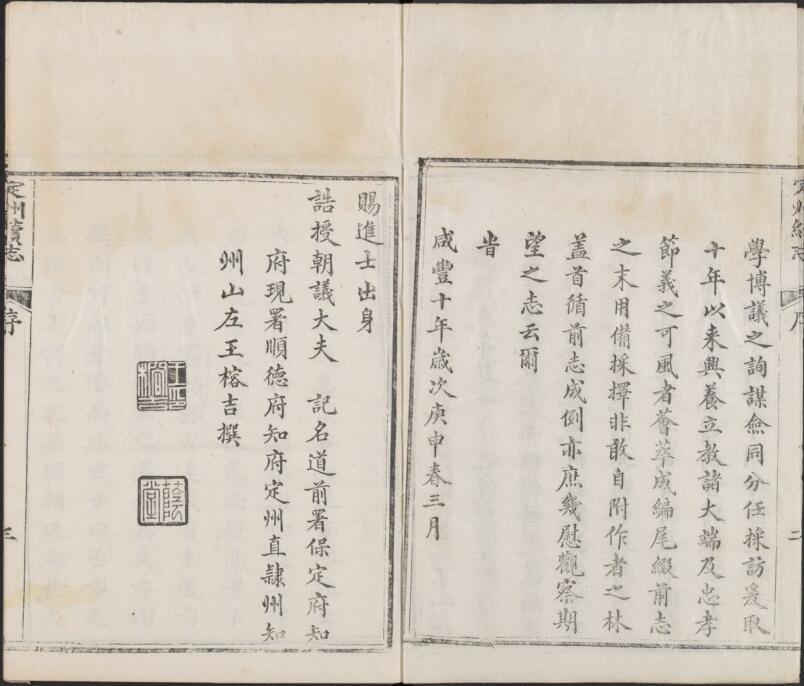 定州續志
序
二
學博議之詢謀僉同分任採訪爰取
十年以来興養立教諸大端及忠孝
節義之可風者薈萃成編尾綴前志
之末用備採擇非敢自附作者之林
盖首循前志成例亦庶幾慰觀察期
望之志云爾
旹
咸豐十年歲次庚申春三月
賜進士出身
誥授朝議大夫 記名道前署保定府知
府現署順德府知府定州直隷州知
州山左王榕吉撰
蔭堂
定州續志
序
三